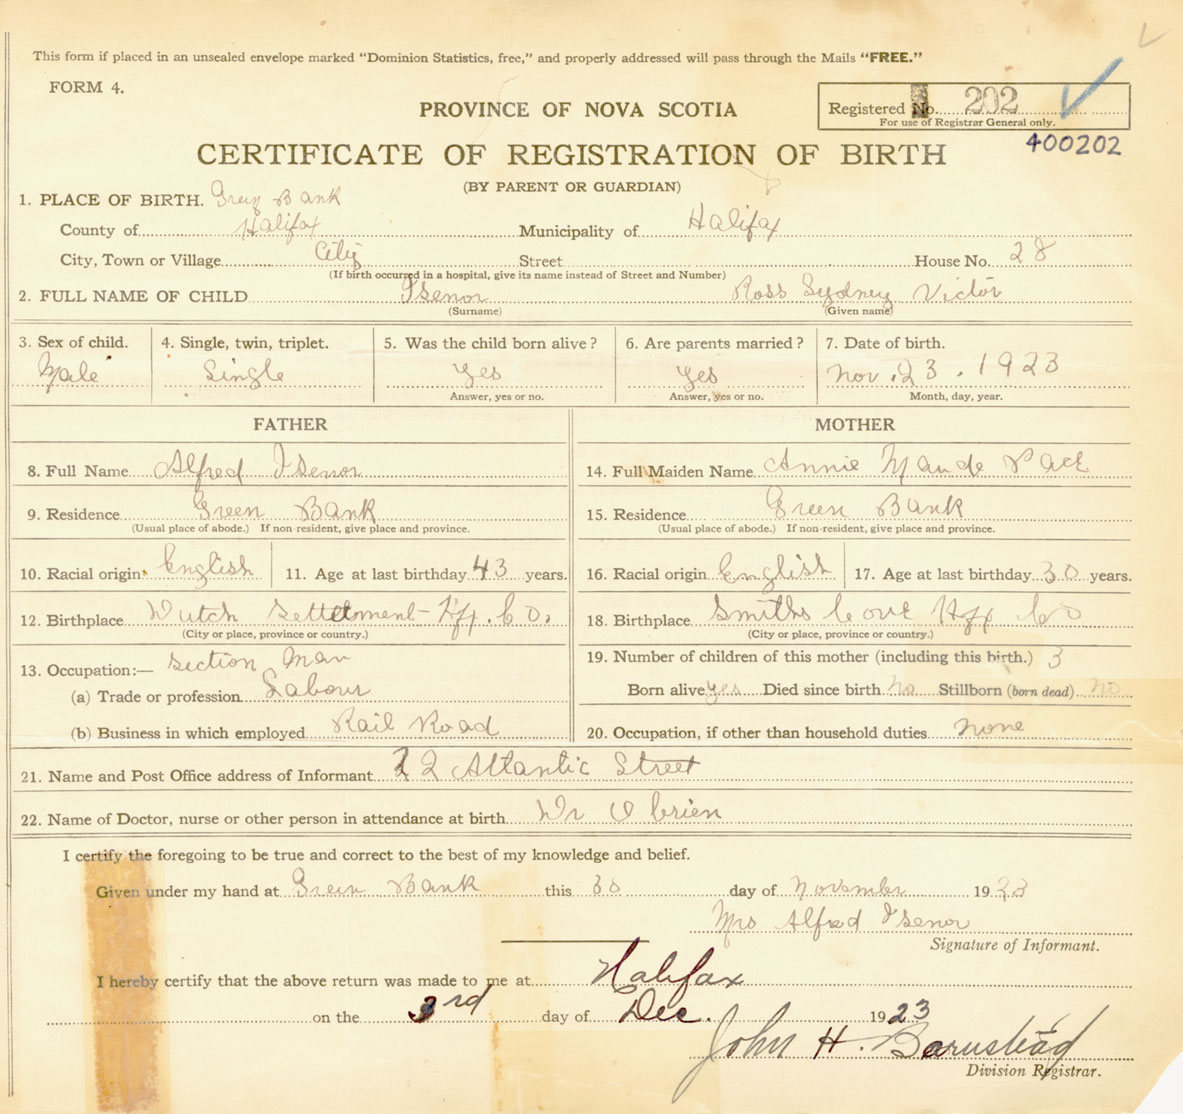 This form if placed in an unsealed envelope marked "Dominion Statistics, free," and properly addressed will pass through the Mails "FREE."
FORM 4.
PROVINCE OF NOVA SCOTIA
Registered No. 202
For use of Registrar General only.
400202
CERTIFICATE OF REGISTRATION OF BIRTH
(BY PARENT OR GUARDIAN)
1. PLACE OF BIRTH. Green Bank
County of Halifax Municipality of Halifax
City, Town or Village City Street House No. 28
(If birth occurred in a hospital, give its name instead of Street and Number)
2. FULL NAME OF CHILD Isenor Ross Sydney Victor
(Surname) (Given name)
3. Sex of child. 4. Single, twin, triplet. 5. Was the child born alive? 6. Are parents married? 7. Date of birth.
Male Single Yes Yes Nov. 23. 1923
Answer, yes or no. Answer, yes or no. Month, day, year.
FATHER
8. Full Name Alfred Isenor
9. Residence Green Bank
(Usual place of abode.) If non resident, give place and province.
10. Racial origin English 11. Age at last birthday 43 years.
12. Birthplace Dutch Settelment Hfx. Co.
(City or place, province or country.)
13. Occupation:— Section Man
(a) Trade or profession Labour
(b) Business in which employed Rail Road
MOTHER
14. Full Maiden Name Annie Maude
15. Residence Green Bank
(Usual place of abode.) If non-resident, give place and province.
16. Racial origin English 17. Age at last birthday 30 years.
18. Birthplace Smiths Cove Hfx Co
(City or place, province or country.)
19. Number of children of this mother (including this birth.) 3
Born alive yes Died since birth No Stillborn (born dead) No
20. Occupation, if other than household duties None
21. Name and Post Office address of Informant 22 Atlantic Street
22. Name of Doctor, nurse or other person in attendance at birth Dr O brien
I certify the foregoing to be true and correct to the best of my knowledge and belief.
Given under my hand at Green Bank this 30 day of November 1923
Mrs Alfred Isenor
Signature of Informant.
I hereby certify that the above return was made to me at Halifax
on the 3rd day of Dec. 1923
John H. Barnstead
Division Registrar.